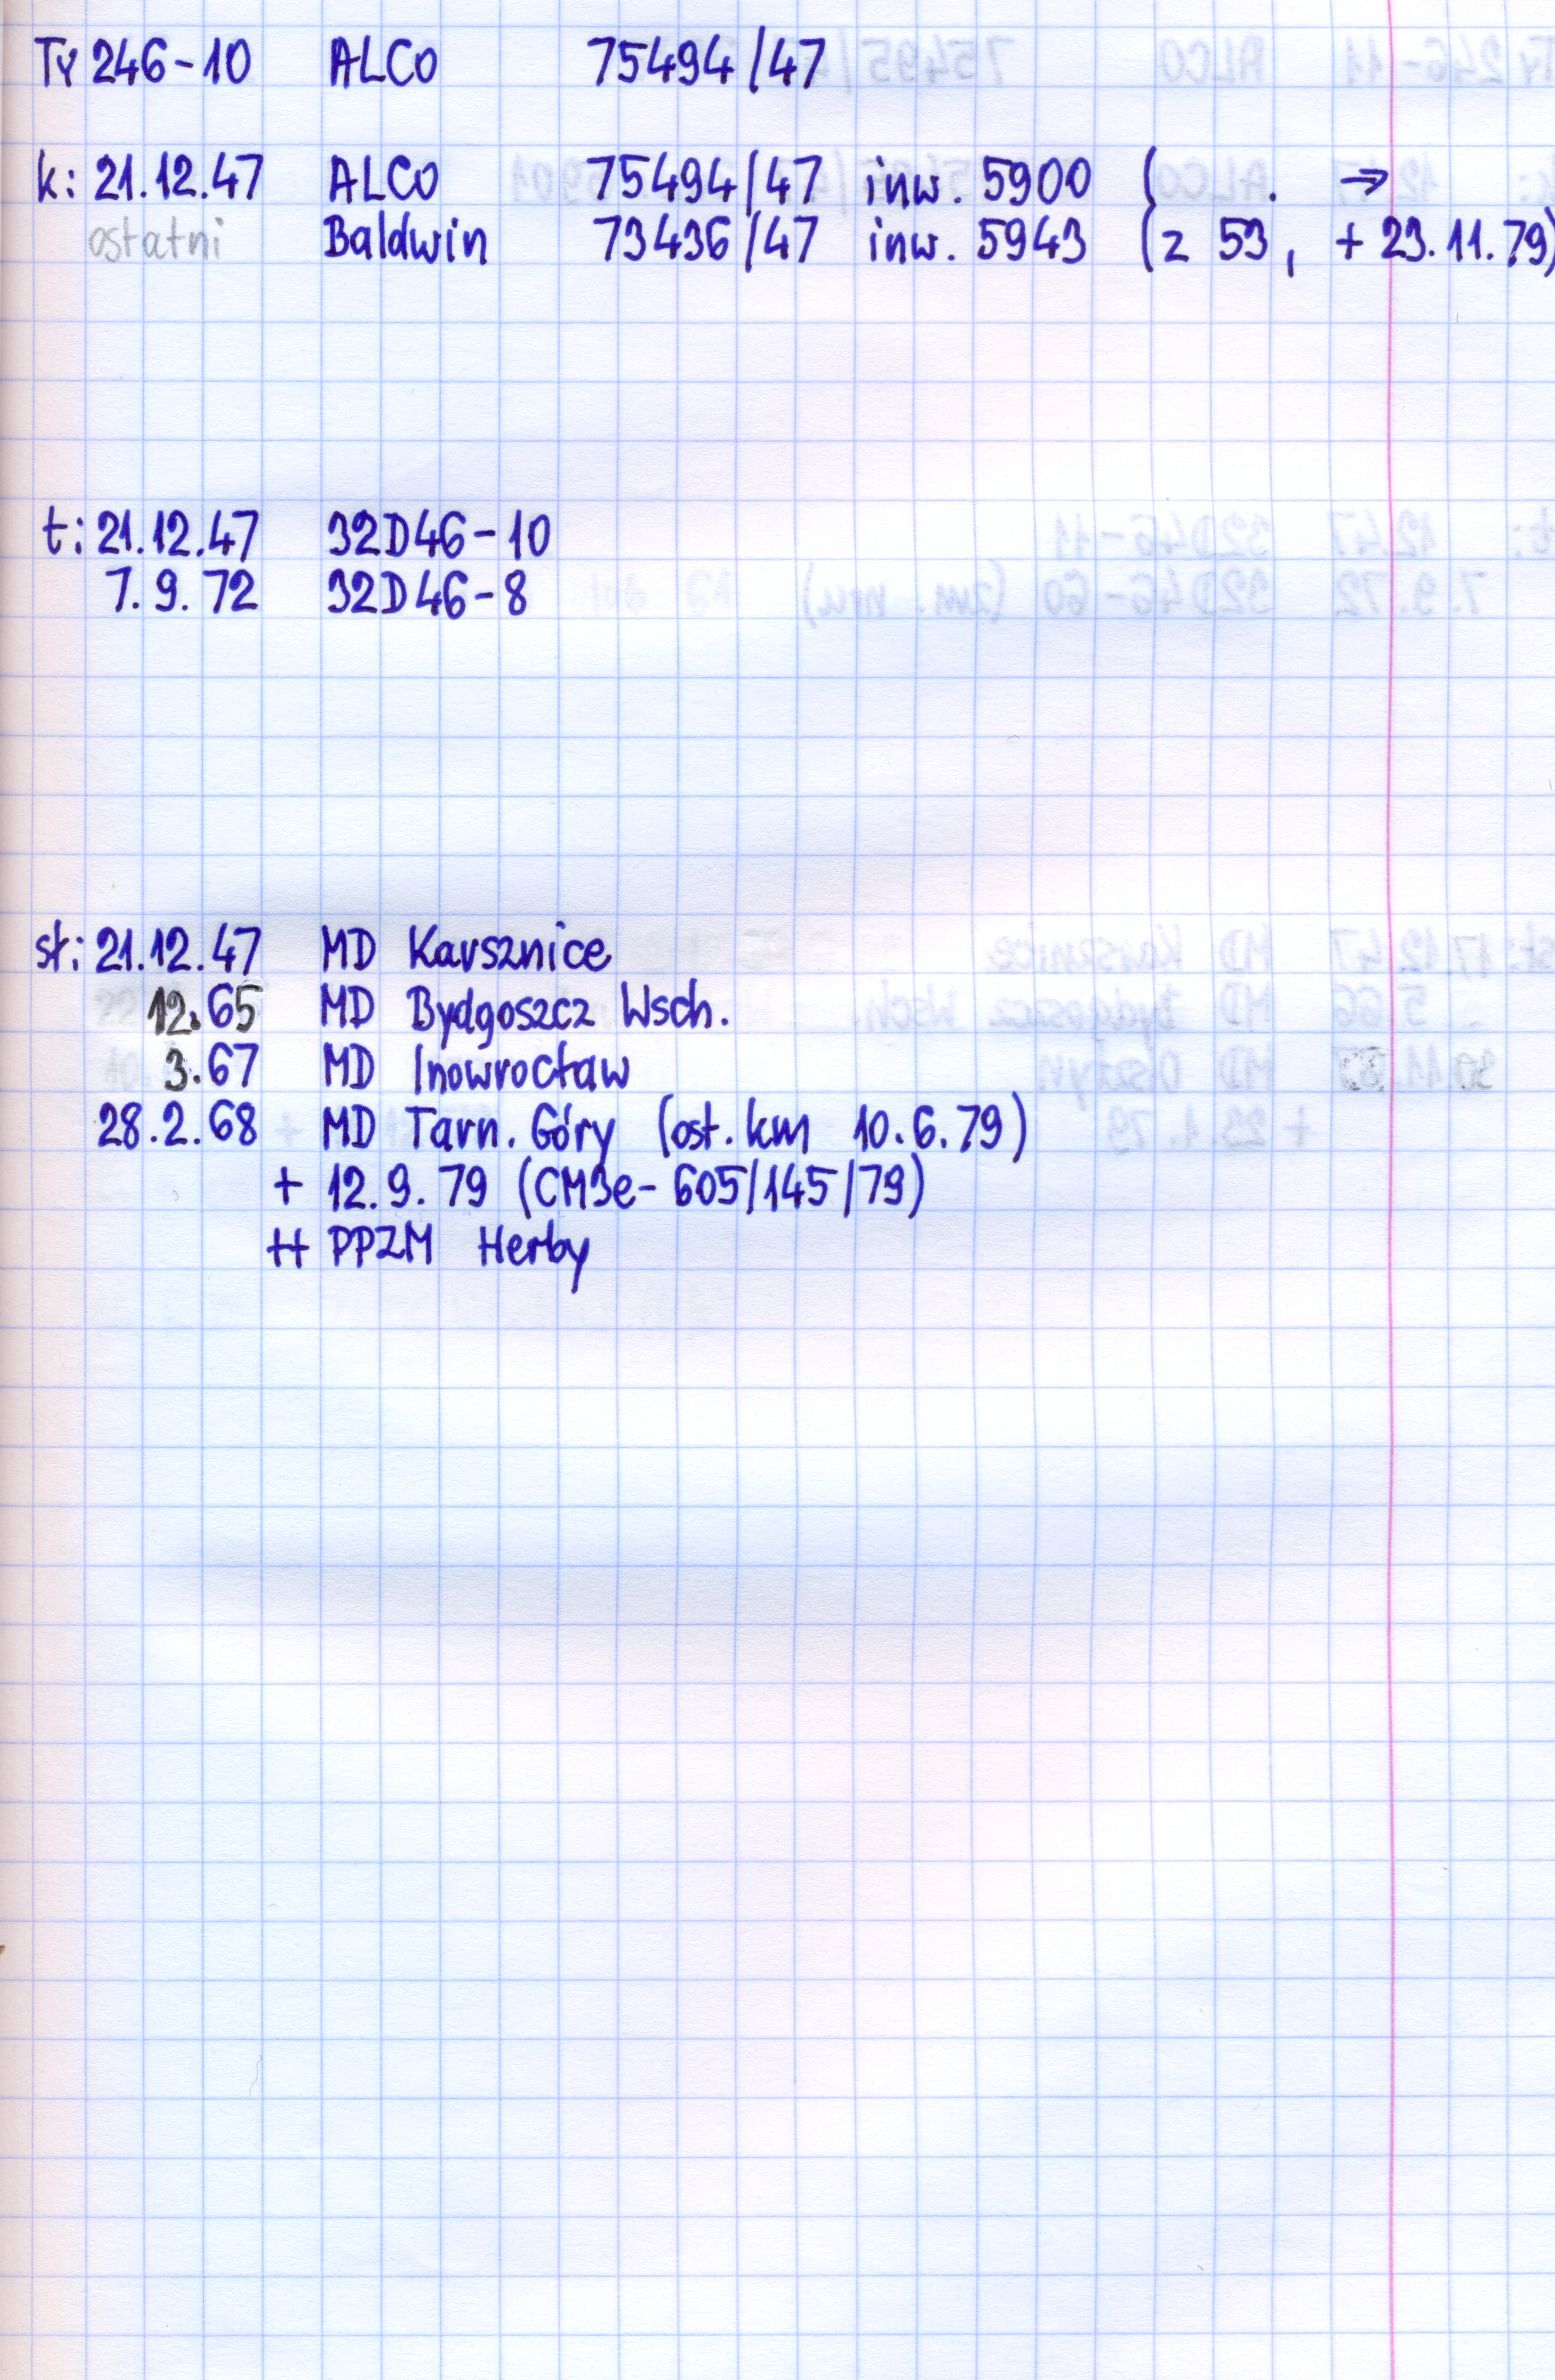 Ty 246-10 ALCO 75494/47
k: 21.12.47 ALCO 75494/47 inw. 5900 ( . →
ostatni Baldwin 73436/47 inw. 5943 (z 53, + 23.11.79)
t: 21.12.47 32D46-10
7.9.72 32D46-8
st: 21.12.47 MD Karsznice
12.65 MD Bydgoszcz Wsch.
3.67 MD Inowrocław
28.2.68 MD Tarn. Góry (ost. km 10.6.79)
+ 12.9.79 (CM3e-605/145/79)
++ PPZM Herby